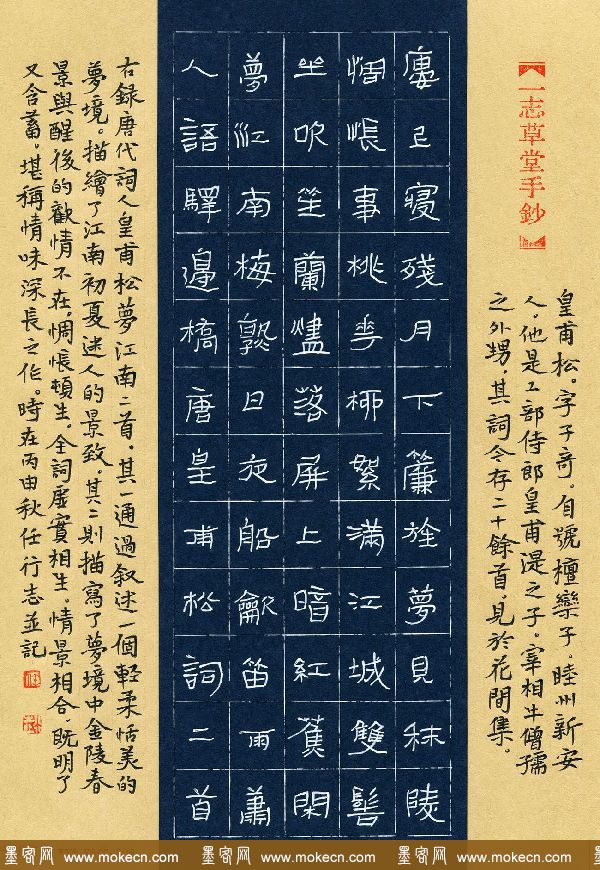 一志草堂手鈔
皇甫松。字子奇。自號檀欒子。睦州新安
人。他是工部侍郎皇甫湜之子。宰相牛僧孺
之外甥。其詞今存二十餘首。見於花間集。
廔上寢殘月下簾旌夢見秣陵
惆悵事桃花柳絮滿江城雙髻
坐吹笙蘭燼落屏上暗紅蕉閑
夢江南梅熟日夜船龡笛雨蕭
人語驛邊橋唐皇甫松詞二首
右錄唐代詞人皇甫松夢江南二首。其一通過叙述一個輕柔恬美的
夢境。描繪了江南初夏迷人的景致。其二則描寫了夢境中金陵春
景與醒後的歡情不在。惆悵頓生。全詞虛實相生。情景相合。既明了
又含蓄。堪稱情味深長之作。時在丙申秋任行志並記
墨客网 www.mokecn.com 墨客网 www.mokecn.com 墨客网 www.mokecn.com